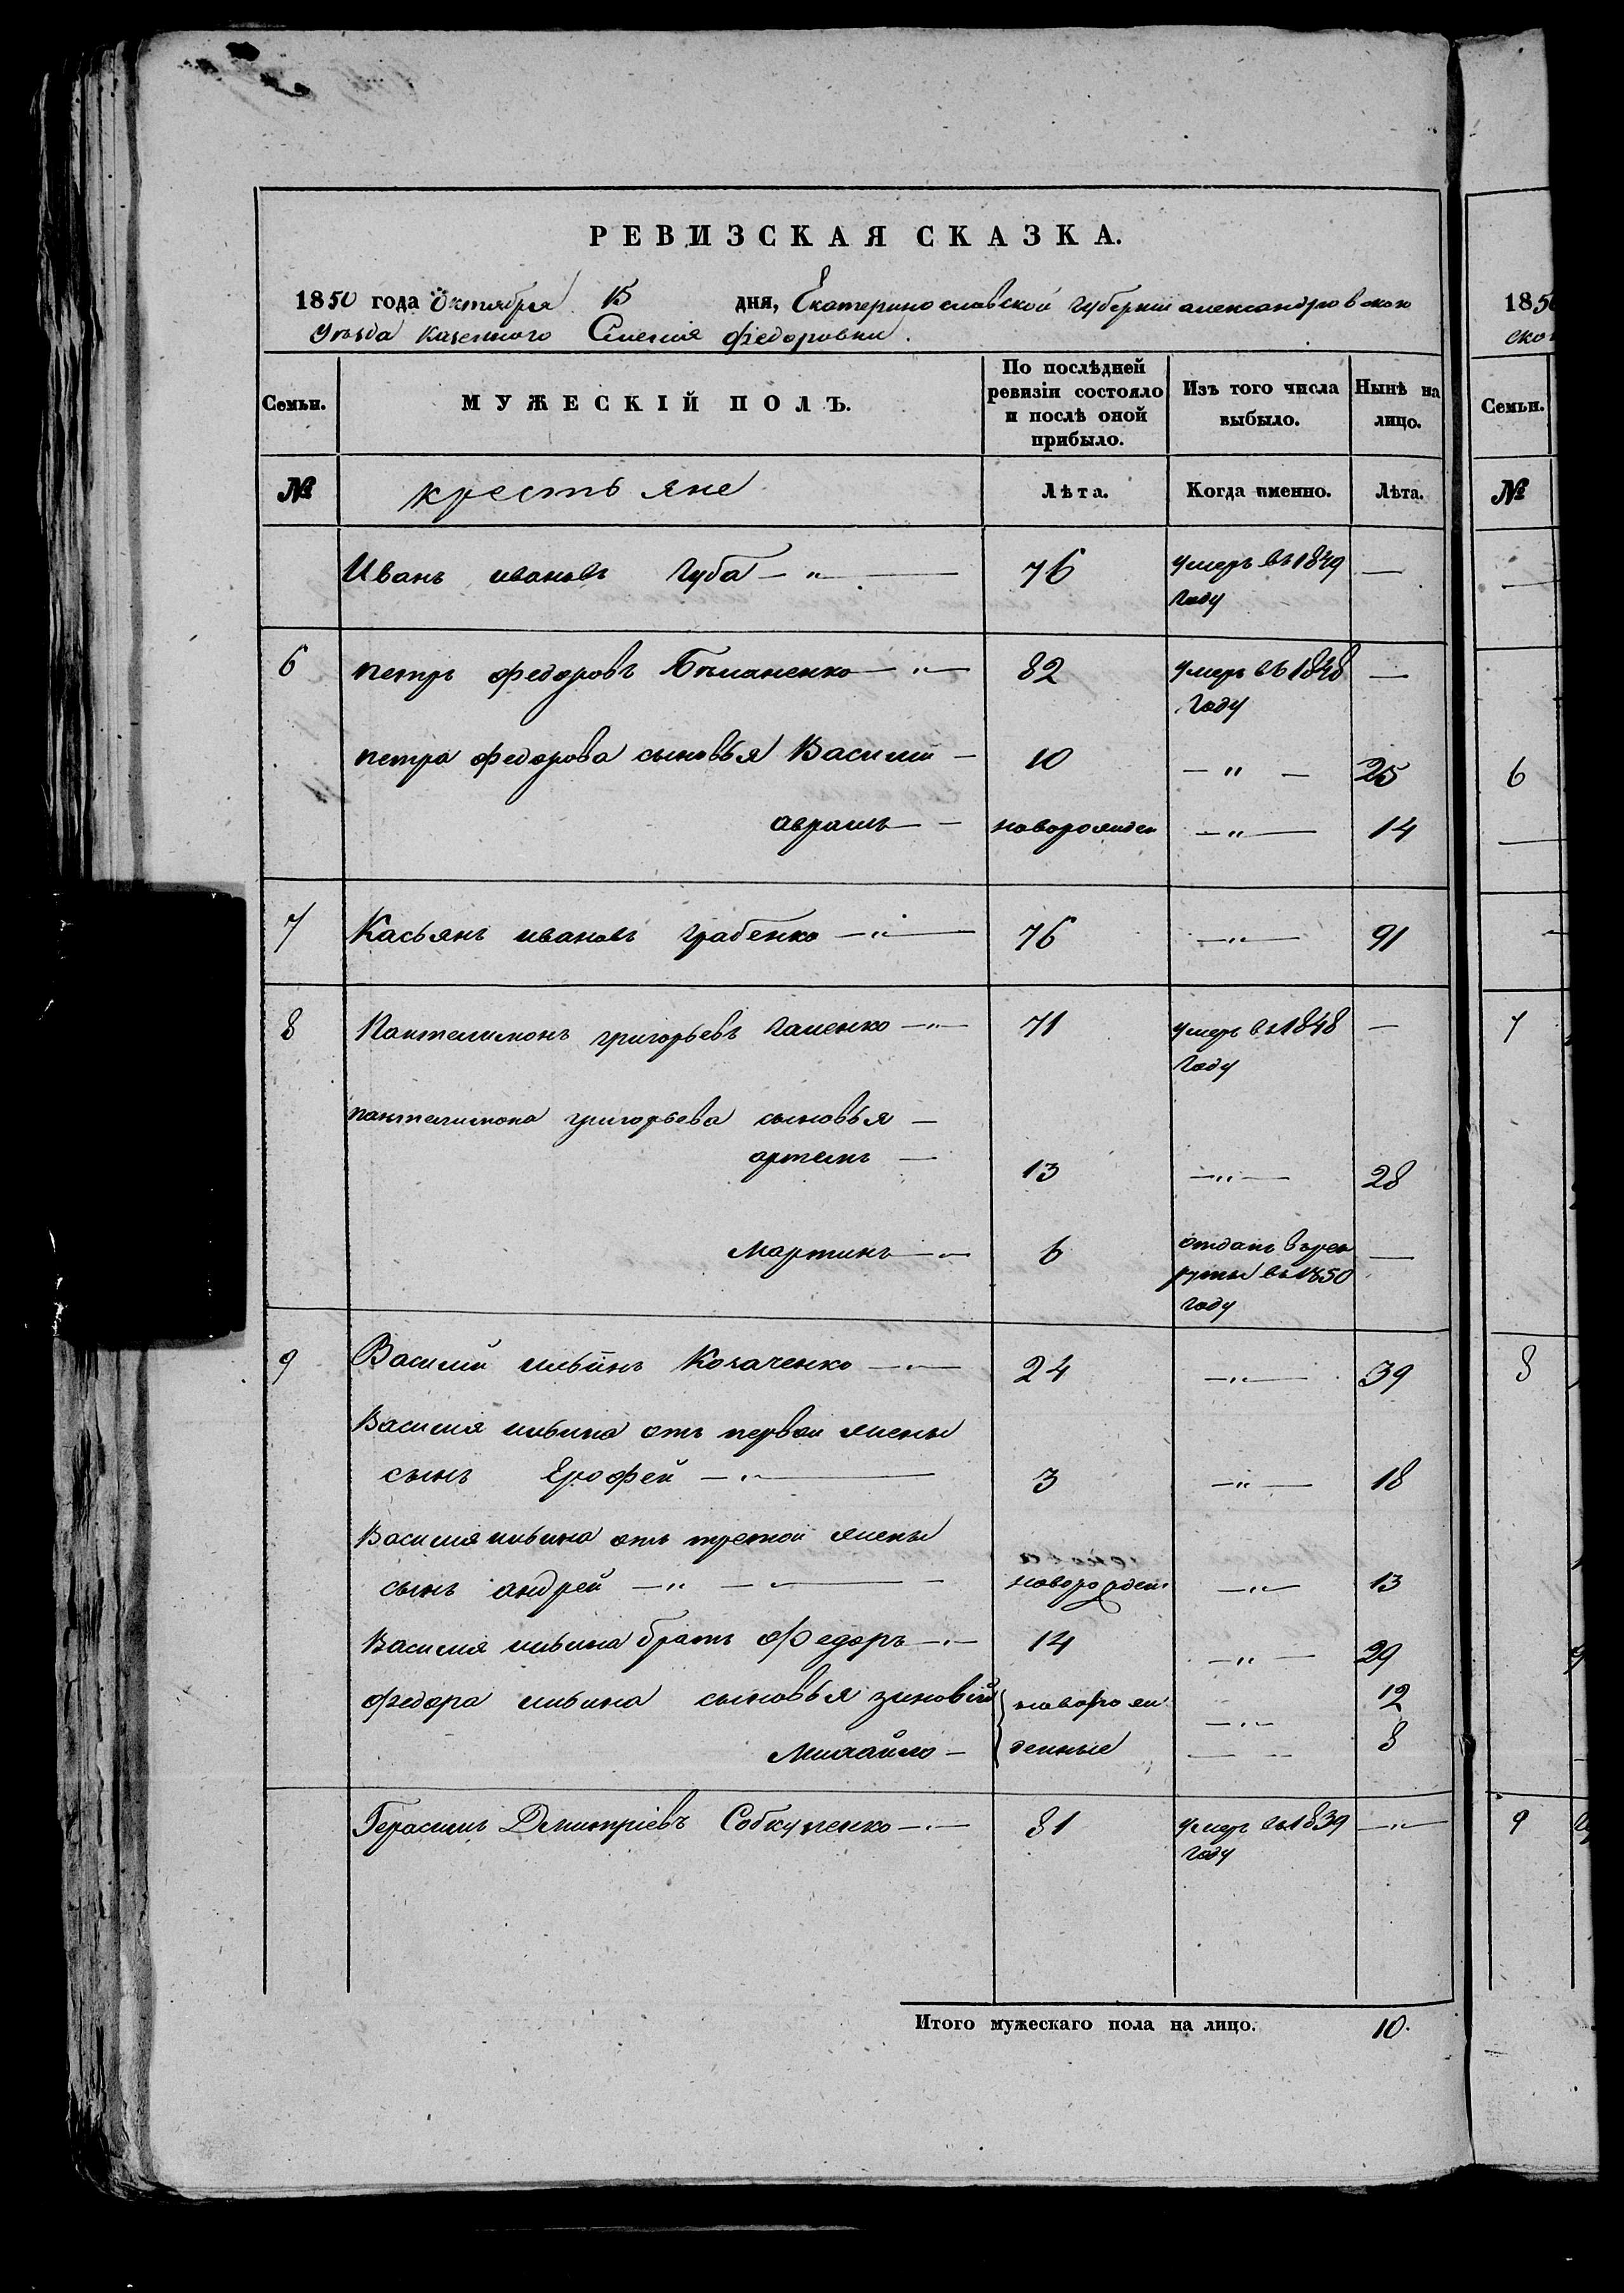 РЕВИЗСКАЯ СКАЗКА.
1850 года Октября 15 дня, Екатеринославской губерніи александровскою
уѣзда казенного Селенія федоровки.
Семьи. МУЖЕСКІЙ ПОЛЪ. По послѣдней ревизіи состояло и послѣ оной прибыло. Изъ того числа выбыло. Нынѣ на лицо.
№ крестьяне Лѣта. Когда именно. Лѣта.
Иванъ ивановъ Губа — " — 76 умеръ въ 1849 —
году
6 петръ федоровъ — " — 82 умеръ въ 1848 —
году
петра федорова сыновья Василій — 10 — " — 25
аврамъ — новорожден — " — 14
7 Касьянъ ивановъ грабенко — " — 76 — " — 91
8 Пантелимонъ григорьевъ — " — 71 умеръ въ 1848 —
году
пантелимона григорьева сыновья —
артемъ — 13 — " — 28
мартинъ — " — 6 отданъ врек —
руты въ 1850
году
9 Василій ильинъ Козаченко — " — 24 — " — 39
Василія ильина отъ первои жены
сынъ Ерофей — " — 3 — " — 18
Василія ильина отъ третои жены
сынъ андрей — " — новорожден — " — 13
Василія ильина братъ федоръ — " — 14 — " — 29
федора ильина сыновья зиновій новорож — " — 12
Михайло — денные — — 8
Герасимъ Дмитріевъ — " — 81 умеръ въ 1839 — " —
году
Итого мужескаго пола на лицо. 10.
1850
ско
Семьи.
№
6
7
8
9